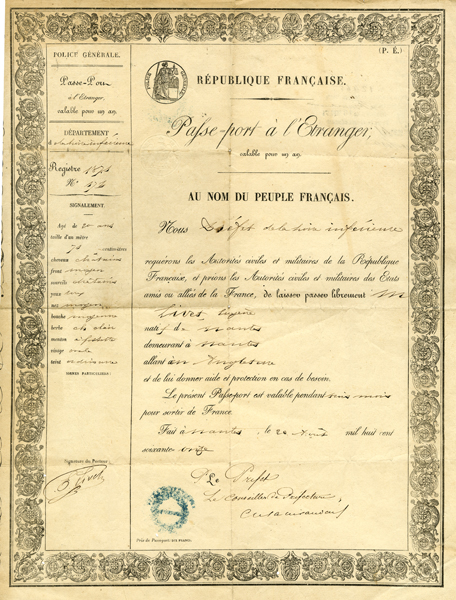 POLICE GÉNÉRALE.
Passe-Port
à l'Etranger,
valable pour un an.
DÉPARTEMENT
de la Loire inférieure
Registre 1871
N°
SIGNALEMENT.
Agé de 20 ans
taille d'un mètre
75 centimètres
cheveux châtains
front moyen
sourcils châtains
yeux
nez moyen
bouche moyenne
barbe
menton à fossette
visage ovale
teint ordinaire
SIGNES PARTICULIERS:
Signature du Porteur:
(P. É.)
RÉPUBLIQUE FRANÇAISE.
Passe-port à l'Etranger,
valable pour un an.
AU NOM DU PEUPLE FRANÇAIS.
Nous Préfet de la Loire inférieure
requérons les Autorités civiles et militaires de la République
Française, et prions les Autorités civiles et militaires des Etats
amis ou alliés de la France, de laisser passer librement M
Eugène
natif de Nantes
demeurant à Nantes
allant en Angleterre
et de lui donner aide et protection en cas de besoin.
Le présent Passe-port est valable pendant mois
pour sortir de France.
Fait à Nantes le 22 Août mil huit cent
soixante onze
Pr Le Préfet
Le Conseiller de Préfecture,
Prix du Passeport: DIX FRANCS.